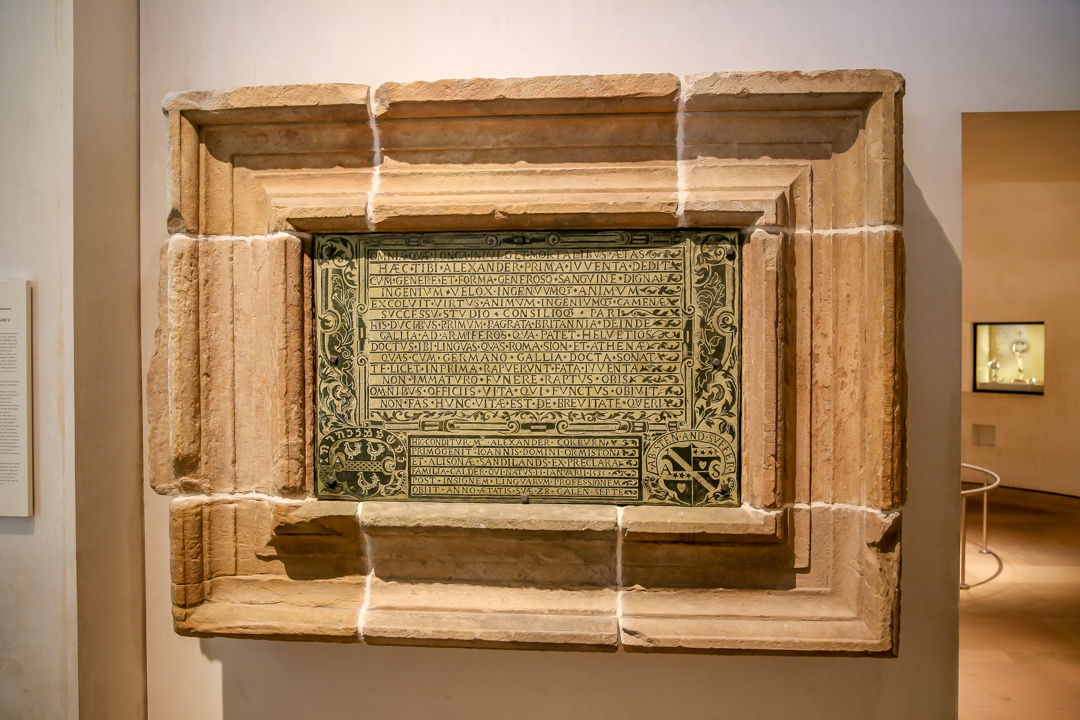 OMNIA·QVÆ·LONGA·INDVLGET·MORTALIBVS·ÆTAS
HÆC·TIBI·ALEXANDER·PRIMA·IVVENTA·DEDIT
CVM·GENERE·ET·FORMA·GENEROSO·SANGVINE·DIGNA
INGENIVM·VELOX·INGENVVMQ3·ANIMVM
EXCOLVIT·VIRTVS·ANIMVM·INGENIVMQ3·CAMENÆ
SVCCESSV·STVDIO·CONSILIOQ3·PARI
HIS·DVCIBVS·PRIMVM·PAGRATA·BRITANNIA·DEINDE
GALLIA·AD·ARMIFEROS·QVA·PATET·HELVETIOS
DOCTVS·IBI·LINGVAS·QVAS·ROMA·SION·ET·ATHENÆ
QVAS·CVM·GERMANO·GALLIA·DOCTA·SONAT
TE·LICET·INPRIMA·RAPVERVNT·FATA·IVVENTA
NON·IMMATVRO·FVNERE·RAPTVS·OBIS
OMNIBVS·OFFICIIS·VITÆ·QVI·FVNCTVS·OBIVIT
NON·FAS·HVNC·VITÆ·EST·DE·BREVITATE·QVERI
HIC·CONDITVR·Mr·ALEXANDER·COKBVRN
PRIMOGENIT·IOANNIS·DOMINI·ORMISTON
ET·ALISONÆ·SANDILANDS·EX·PRECLARA
FAMILIA·CALDER·QVI·NATVS·13·IANVARII·1535
POST·INSIGNEM·LINGVARVM·PROFESSIONEM
OBIIT·ANNO·ÆTATIS·SVÆ·28·CALEN·SEPTE